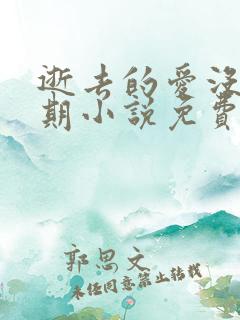 逝去的愛沒
期小說免費
郭思文
未经同意禁止转载